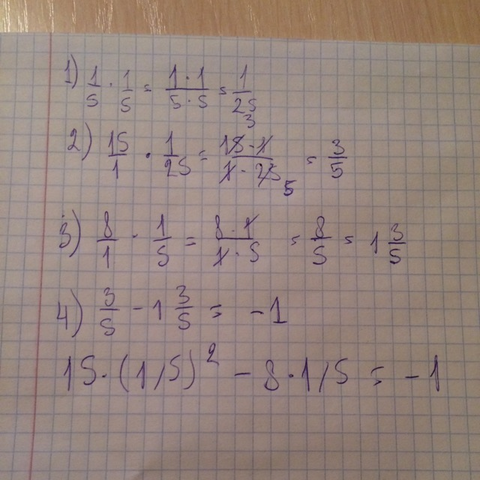 1) 1/5 · 1/5 = 1·1/5·5 = 1/25
2) 15/1 · 1/25 = 15·1/1·25 = 3/5
3) 8/1 · 1/5 = 8·1/1·5 = 8/5 = 1 3/5
4) 3/5 - 1 3/5 = -1
15·(1/5)² - 8·1/5 = -1